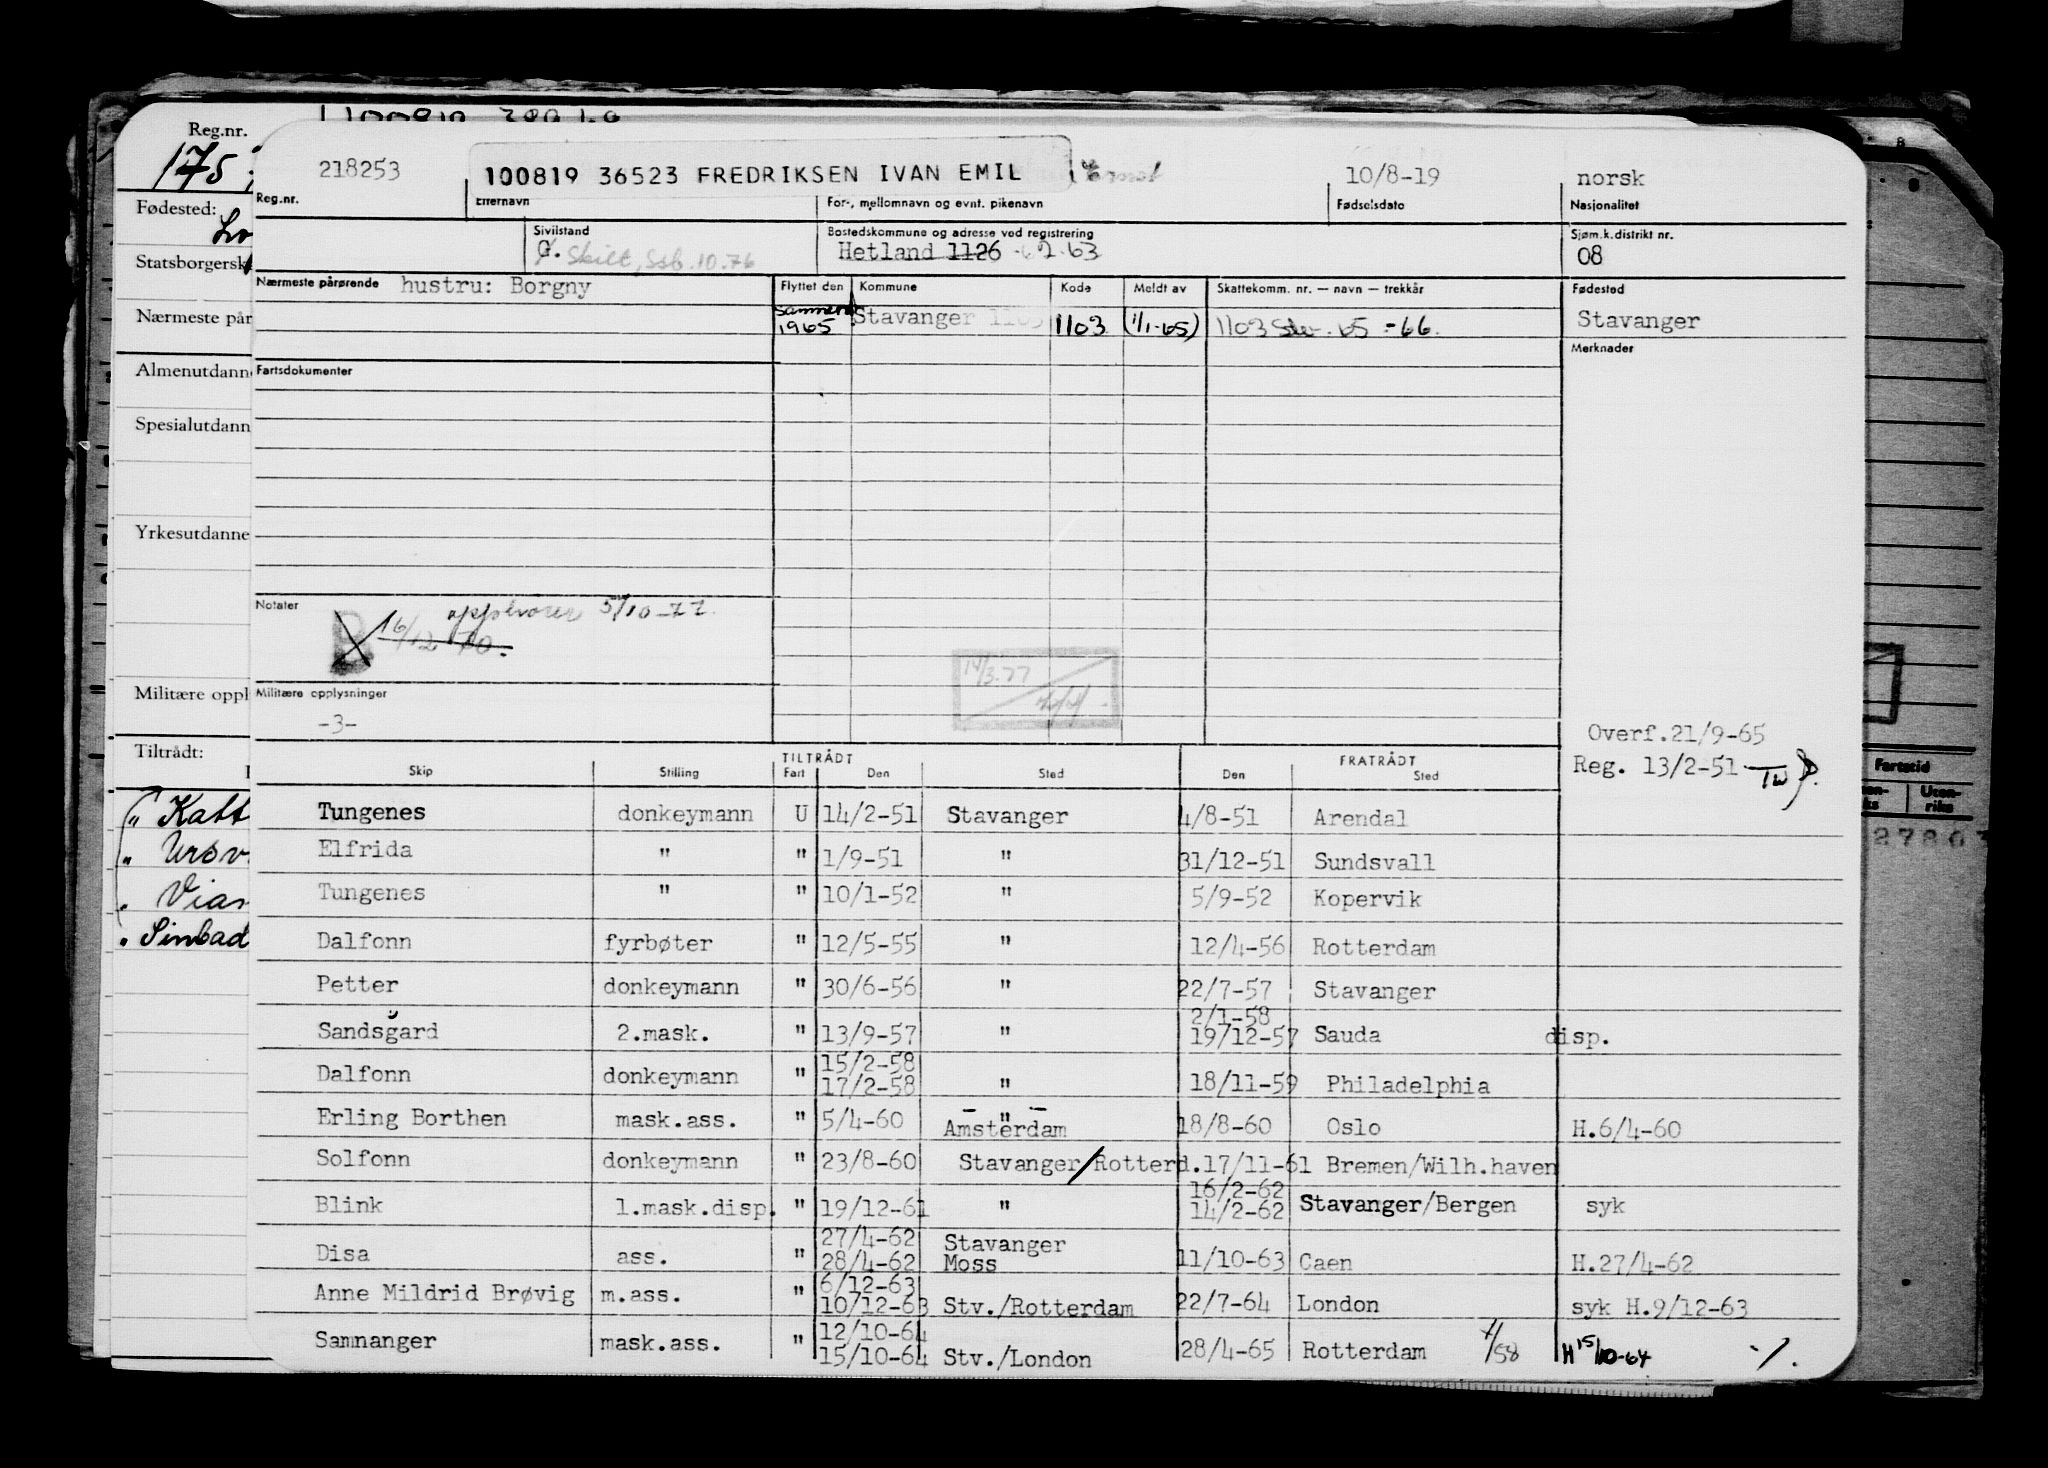 Reg.nr.
175
Fødested:
Statsborgersk
Nærmeste pår
Almenutdann
Spesialutdann
Yrkesutdanne
Militære oppl
Tiltrådt:
" Katt
" Ursv
" Vian
" Sinbad
218253 100819 36523 FREDRIKSEN IVAN EMIL 10/8-19 norsk
Reg.nr. Etternavn For-, mellomnavn og evnt. pikenavn Fødselsdato Nasjonalitet
Sivilstand Bostedskommune og adresse ved registrering Sjøm.k.distrikt nr.
G. Skilt, Ssb. 10.76 Hetland 1126 2.63 08
Nærmeste pårørende hustru: Borgny Flyttet den Kommune Kode Meldt av Skattekomm. nr. — navn — trekkår Fødested
1965 Stavanger 1103 1103 (1/1-65) 1103 Stv. 65 -66. Stavanger
Merknader
Fartsdokumenter
Notater
opphører 5/10-77.
16/12 70.
14/3.77
Militære opplysninger
-3-
Overf.21/9-65
Reg. 13/2-51
TILTRÅDT FRATRÅDT
Skip Stilling Fart Den Sted Den Sted
Tungenes donkeymann U 14/2-51 Stavanger 4/8-51 Arendal
Elfrida " " 1/9-51 " 31/12-51 Sundsvall
Tungenes " " 10/1-52 " 5/9-52 Kopervik
Dalfonn fyrbøter " 12/5-55 " 12/4-56 Rotterdam
Petter donkeymann " 30/6-56 " 22/7-57 Stavanger
2/1-58
Sandsgard 2.mask. " 13/9-57 " 19/12-57 Sauda disp.
15/2-58
Dalfonn donkeymann " 17/2-58 " 18/11-59 Philadelphia
Erling Borthen mask.ass. " 5/4-60 - " - Amsterdam 18/8-60 Oslo H.6/4-60
Solfonn donkeymann " 23/8-60 Stavanger/Rotterd. 17/11-61 Bremen/Wilh.haven
16/2-62
Blink 1.mask.disp. " 19/12-61 " 14/2-62 Stavanger/Bergen syk
27/4-62 Stavanger
Disa ass. " 28/4-62 Moss 11/10-63 Caen H.27/4-62
6/12-63
Anne Mildrid Brøvig m.ass. " 10/12-63 Stv./Rotterdam 22/7-64 London syk H.9/12-63
12/10-64
Samnanger mask.ass. " 15/10-64 Stv./London 28/4-65 Rotterdam /58 H 15/10-64
Fartstid
Uten-
riks